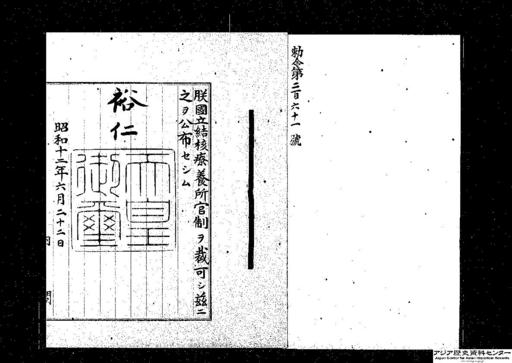 勅令第二百六十一號
朕國立結核療養所官制ヲ裁可シ茲ニ
之ヲ公布セシム
裕仁
天皇御璽
昭和十二年六月二十二日
アジア歴史資料センター
Japan Center for Asian Historical Records